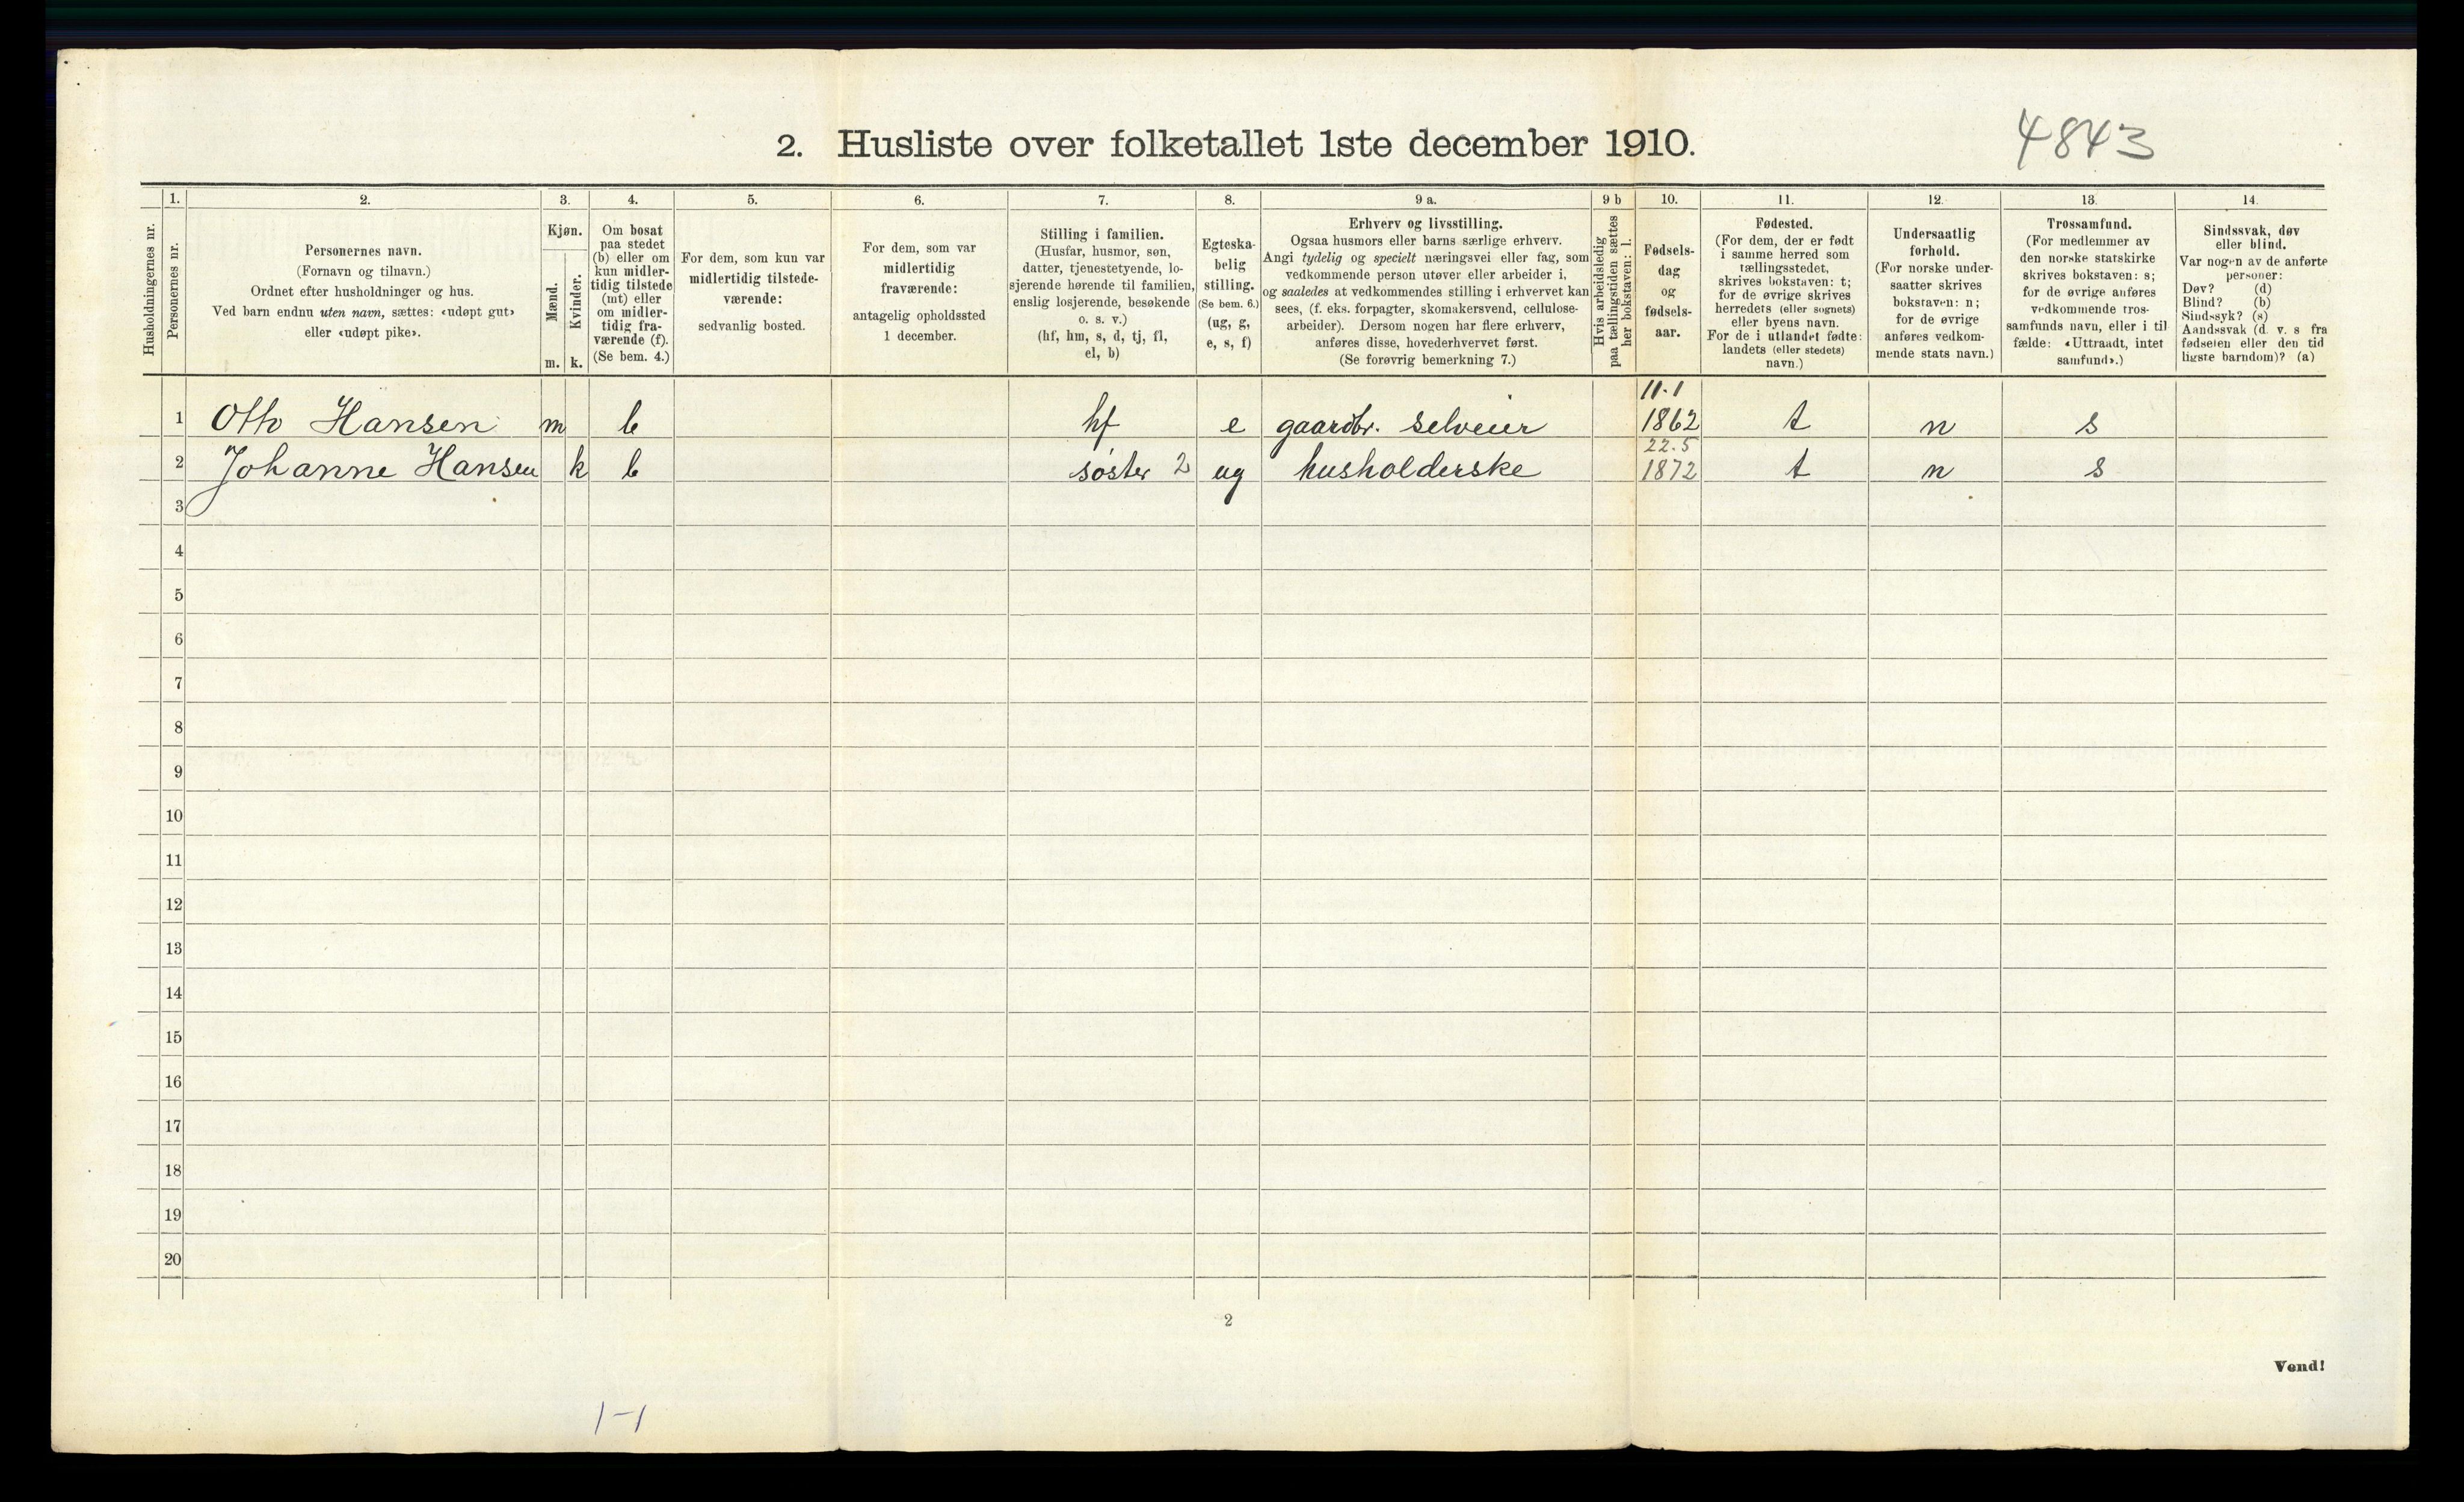 2. Husliste over folketallet 1ste december 1910.
4843
Husholdningernes nr.
1.
Personernes nr.
2.
Personernes navn.
(Fornavn og tilnavn.)
Ordnet efter husholdninger og hus.
Ved barn endnu uten navn, sættes: «udøpt gut»
eller «udøpt pike».
3.
Kjøn.
Mænd.
m.
Kvinder.
k.
4.
Om bosat
paa stedet
(b) eller om
kun midler-
tidig tilstede
(mt) eller
om midler-
tidig fra-
værende (f).
(Se bem. 4.)
5.
For dem, som kun var
midlertidig tilstede-
værende:
sedvanlig bosted.
6.
For dem, som var
midlertidig
fraværende:
antagelig opholdssted
1 december.
7.
Stilling i familien.
(Husfar, husmor, søn,
datter, tjenestetyende, lo-
sjerende hørende til familien,
enslig losjerende, besøkende
o. s. v.)
(hf, hm, s, d, tj, fl,
el, b)
8.
Egteska-
belig
stilling.
(Se bem. 6.)
(ug, g,
e, s, f)
9 a.
Erhverv og livsstilling.
Ogsaa husmors eller barns særlige erhverv.
Angi tydelig og specielt næringsvei eller fag, som
vedkommende person utøver eller arbeider i,
og saaledes at vedkommendes stilling i erhvervet kan
sees, (f. eks. forpagter, skomakersvend, cellulose-
arbeider). Dersom nogen har flere erhverv,
anføres disse, hovederhvervet først.
(Se forøvrig bemerkning 7.)
9 b
Hvis arbeidsledig
paa tællingstiden sættes
her bokstaven: l.
10.
Fødsels-
dag
og
fødsels-
aar.
11.
Fødested.
(For dem, der er født
i samme herred som
tællingsstedet,
skrives bokstaven: t;
for de øvrige skrives
herredets (eller sognets)
eller byens navn.
For de i utlandet fødte:
landets (eller stedets)
navn.)
12.
Undersaatlig
forhold.
(For norske under-
saatter skrives
bokstaven: n;
for de øvrige
anføres vedkom-
mende stats navn.)
13.
Trossamfund.
(For medlemmer av
den norske statskirke
skrives bokstaven: s;
for de øvrige anføres
vedkommende tros-
samfunds navn, eller i til
fælde: «Uttraadt, intet
samfund».)
14.
Sindssvak, døv
eller blind.
Var nogen av de anførte
personer:
Døv? (d)
Blind? (b)
Sindssyk? (s)
Aandssvak (d. v. s fra
fødselen eller den tid
ligste barndom)? (a)
11-1
1 Otto Hansen m b hf e gaardbr. selveier 1862 t n s
22.5
2 Johanne Hansen k b søster 2 ug husholderske 1872 t n s
3
4
5
6
7
8
9
10
11
12
13
14
15
16
17
18
19
20
2
Vend!
1-1